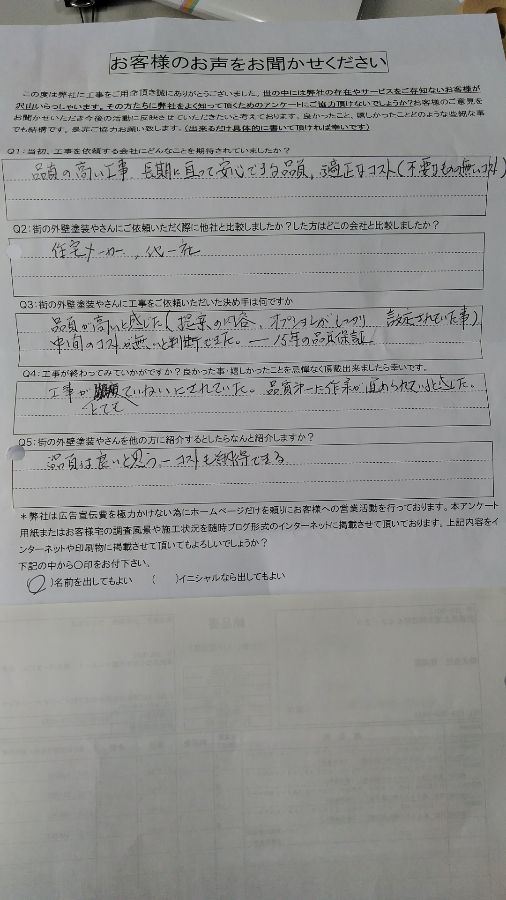 お客様のお声をお聞かせください
この度は弊社に工事をご用命頂き誠にありがとうございました。世の中には弊社の存在やサービスをご存知ないお客様が
沢山いらっしゃいます。その方たちに弊社をよく知って頂くためのアンケートにご協力頂けないでしょうか?お客様のご意見を
お聞かせいただき今後の活動に反映させていただきたいと考えております。良かったこと、嬉しかったことどのような些細な事
でも結構です。是非ご協力お願い致します。(出来るだけ具体的に書いて頂ければ幸いです)
Q1:当初、工事を依頼する会社にどんなことを期待されていましたか?
品質の高い工事、長期に亘って安心できる品質、適正なコスト(不要なもの無いコスト)
Q2:街の外壁塗装やさんにご依頼いただく際に他社と比較しましたか?した方はどこの会社と比較しましたか?
住宅メーカー、他一社
Q3:街の外壁塗装やさんに工事をご依頼いただいた決め手は何ですか
品質が高いと感じた(提案の内容、オプションがしっかり 設定されていた事)
中間のコストが無いと判断できた。ー15年の品質保証
Q4:工事が終わってみていかがですか?良かった事・嬉しかったことを忌憚なく頂戴出来ましたら幸いです。
工事がとてもていねいにされていた。品質第一に作業が進められていると感じた。
Q5:街の外壁塗装やさんを他の方に紹介するとしたらなんと紹介しますか?
品質は良いと思う。ーコストも納得できる
*弊社は広告宣伝費を極力かけない為にホームページだけを頼りにお客様への営業活動を行っております。本アンケート
用紙またはお客様宅の調査風景や施工状況を随時ブログ形式のインターネットに掲載させて頂いております。上記内容をイ
ンターネットや印刷物に掲載させて頂いてもよろしいでしょうか?
下記の中から○印をお付下さい。
(○)名前を出してもよい ( )イニシャルなら出してもよい